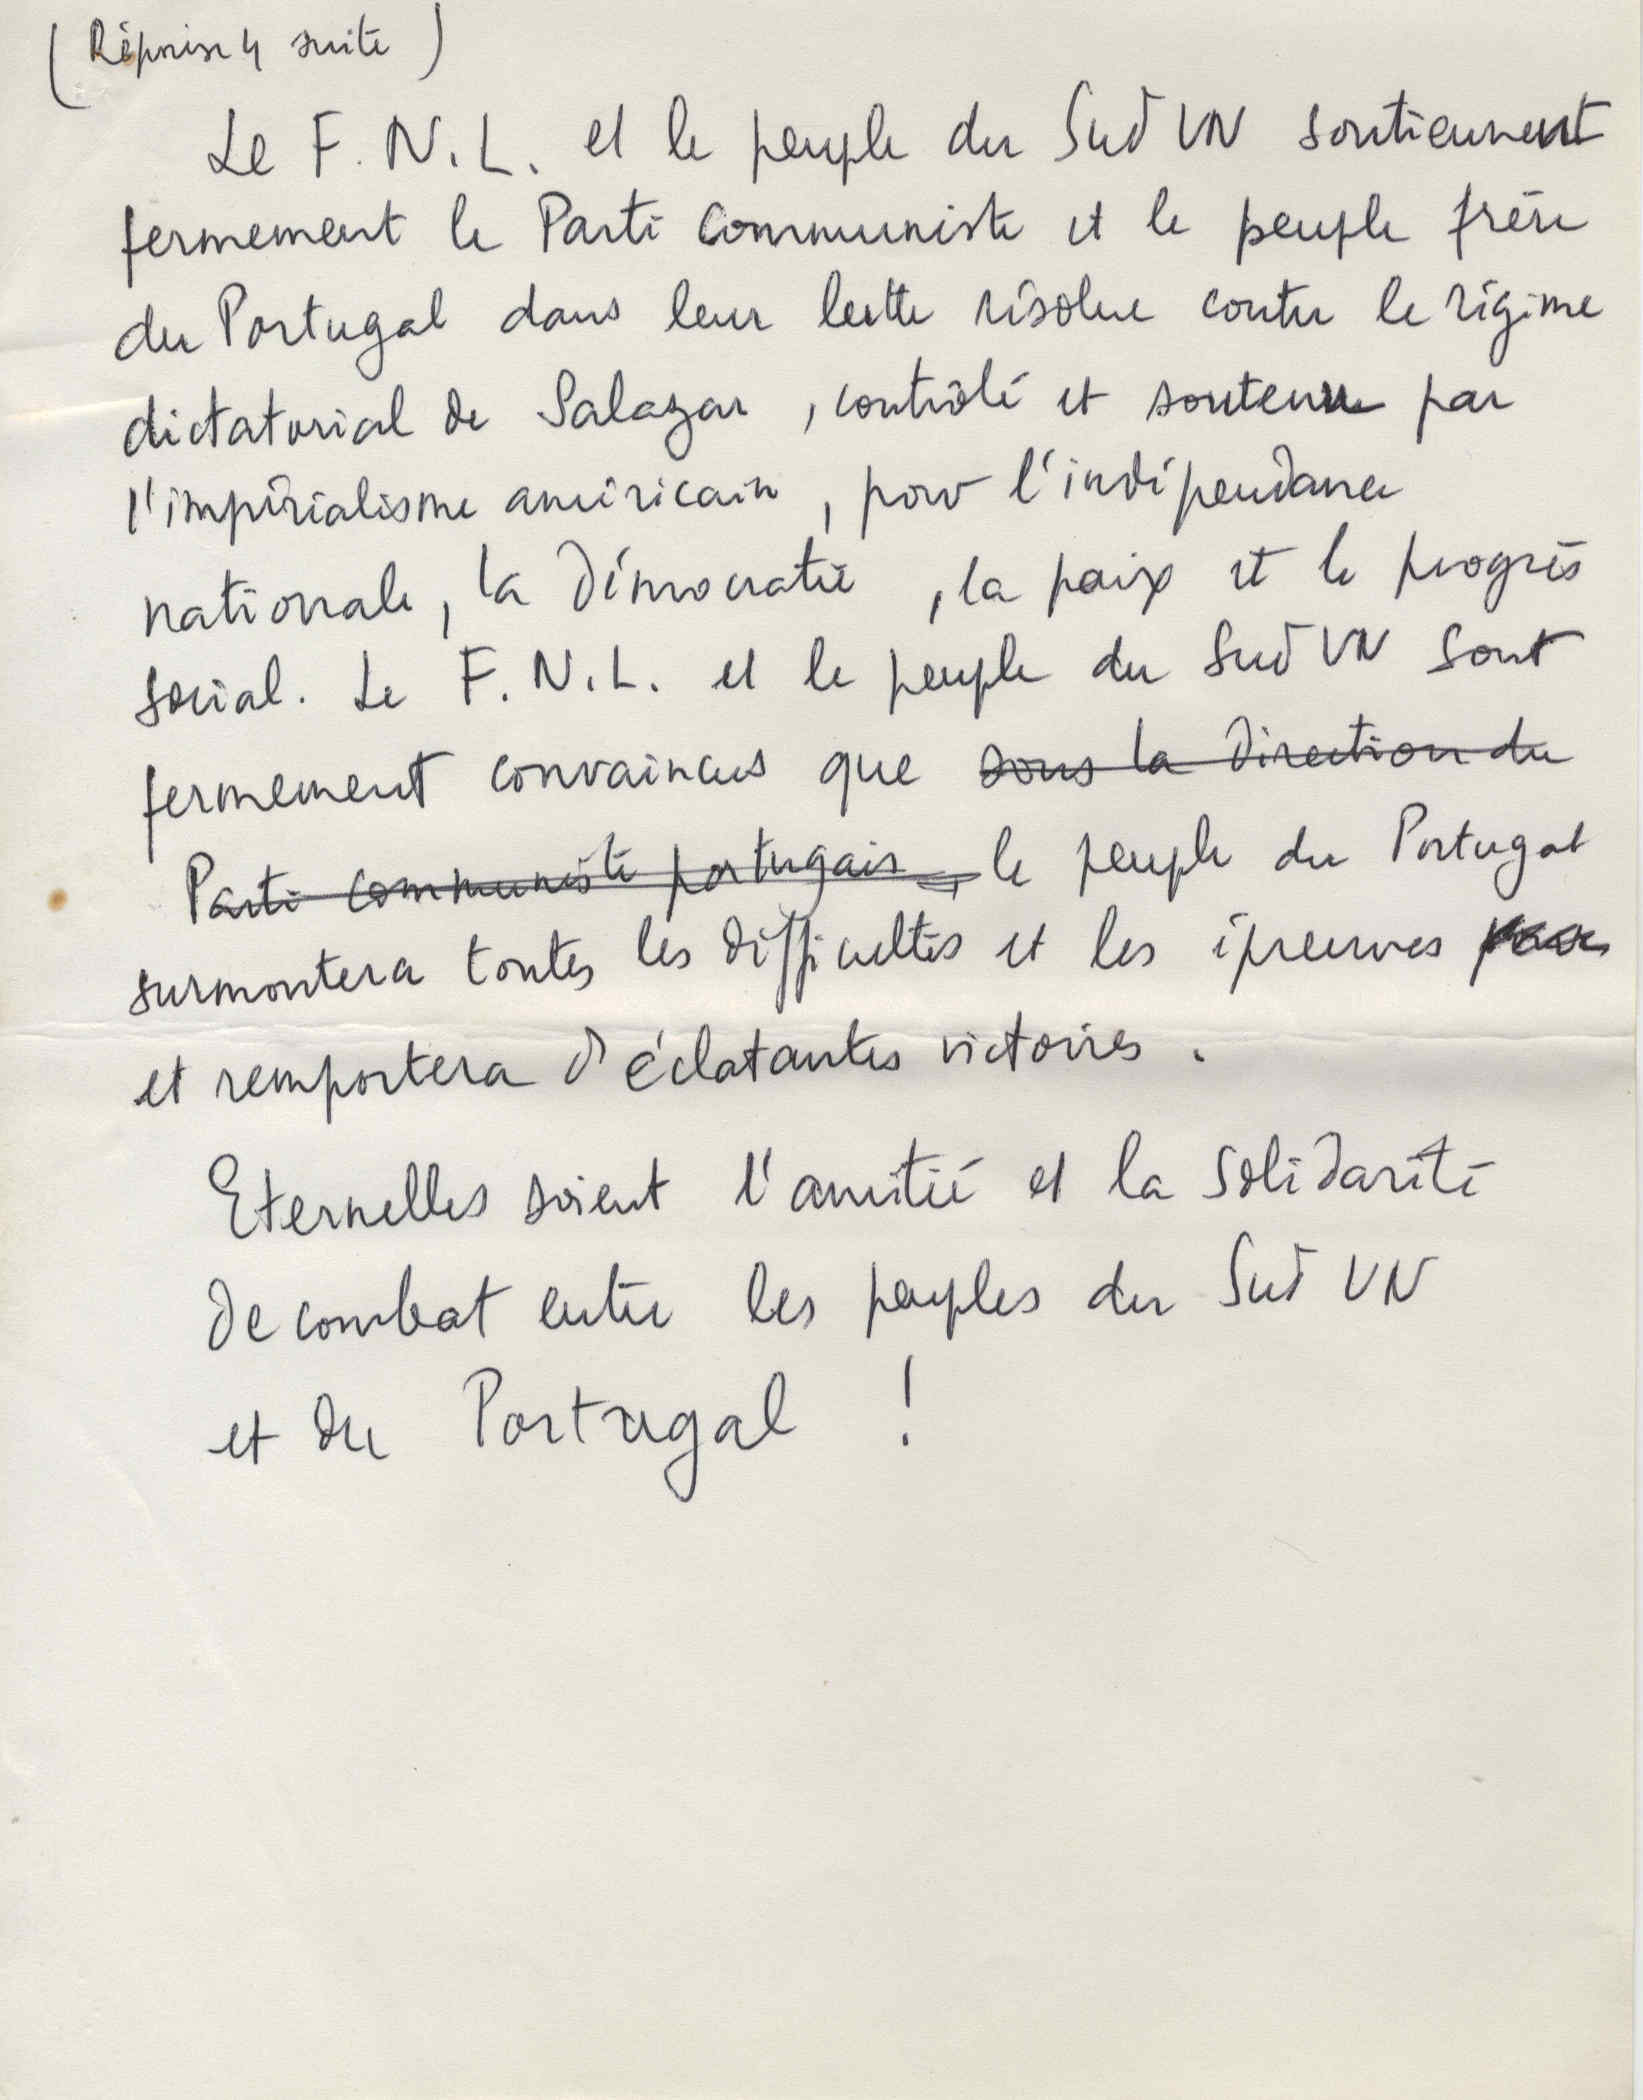 (Réponse 4 suite)
Le F.N.L. et le peuple du Sud VN soutiennent
fermement le Parti Communiste et le peuple frère
du Portugal dans leur lutte résolue contre le régime
dictatorial de Salazar, contrôlé et soutenu par
l'impérialisme américain, pour l'indépendance
nationale, la démocratie, la paix et le progrès
social. Le F.N.L. et le peuple du Sud VN sont
fermement convaincus que sous la direction du
Parti communiste portugais, le peuple du Portugal
surmontera toutes les difficultés et les épreuves
et remportera d'éclatantes victoires.
Eternelles soient l'amitié et la solidarité
de combat entre les peuples du Sud VN
et du Portugal !